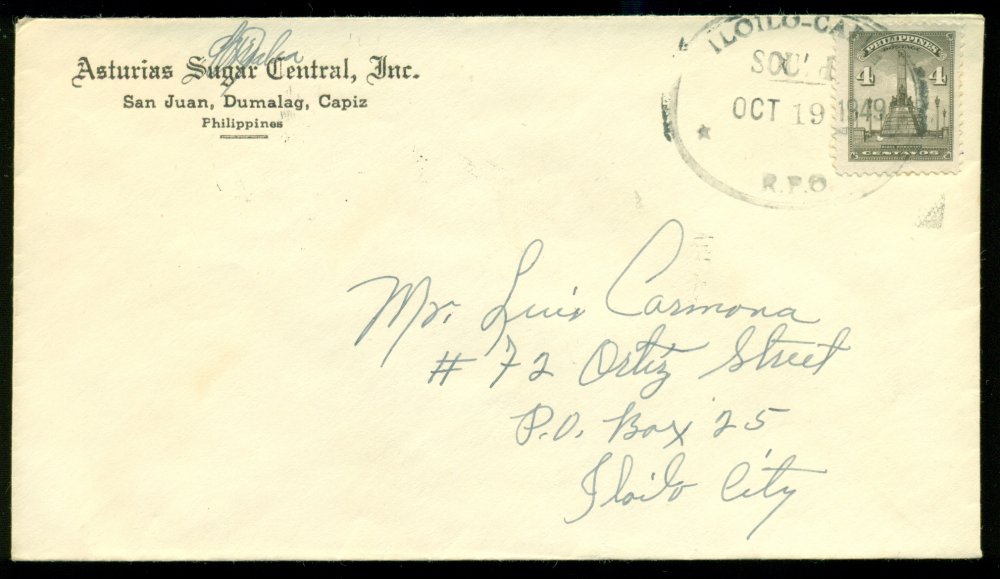 Asturias Sugar Central, Inc.
San Juan, Dumalag, Capiz
Philippines
ILOILO-CA
OCT 19 1949
R.P.O
PHILIPPINES
POSTAGE
4 4
CENTAVOS
Mr. Luis Carmona
# 72 Ortiz Street
P.O. Box 25
Iloilo City